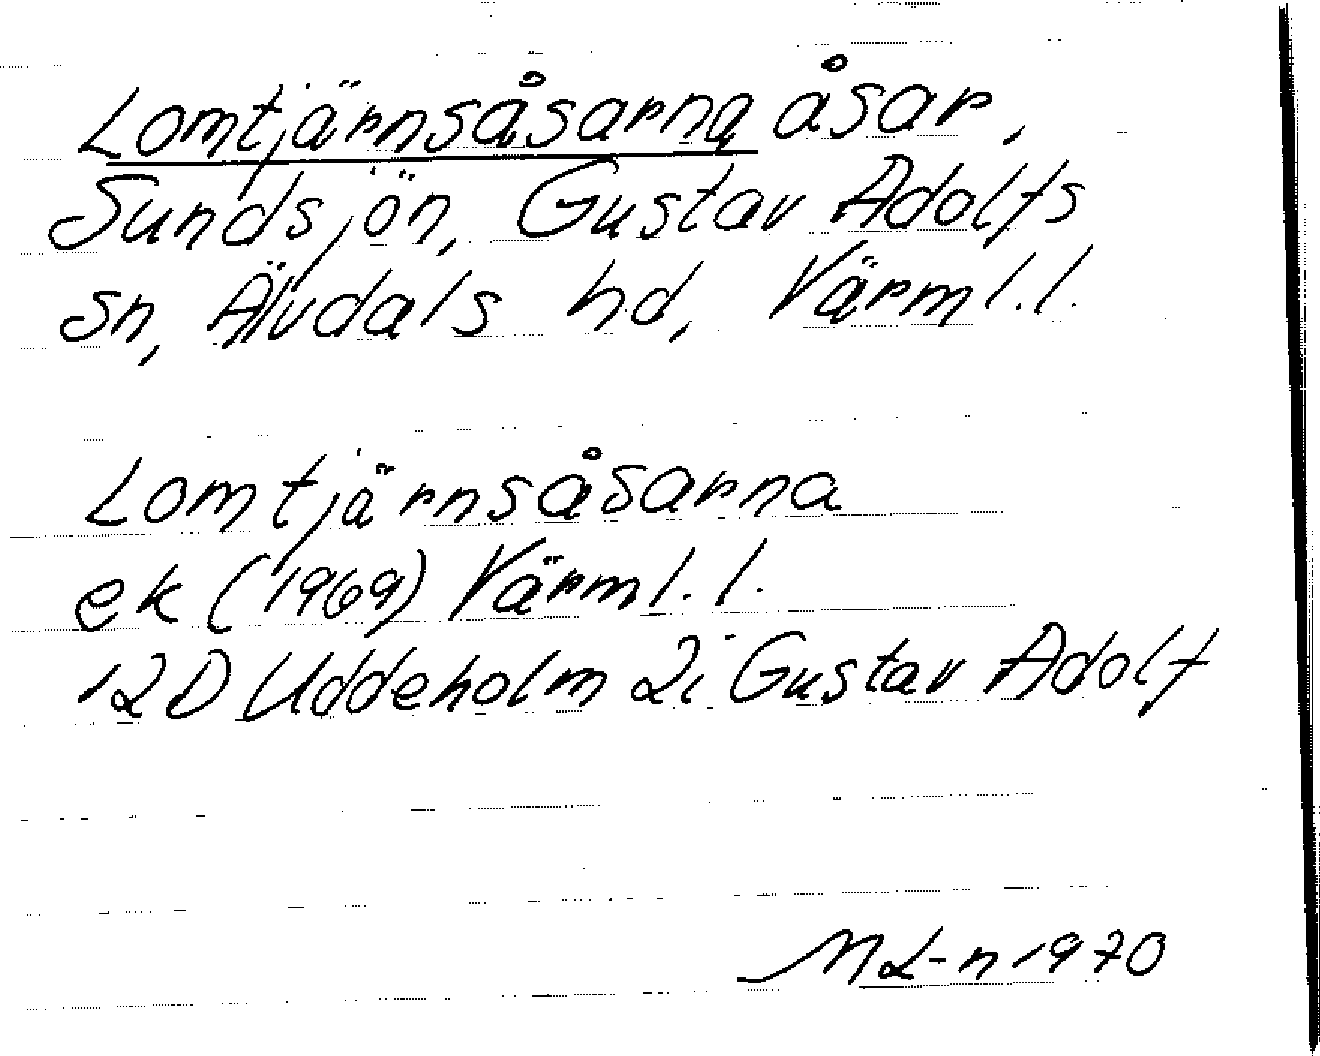 Lomtjärnsåsarna åsar,
Sundsjön, Gustav Adolfs
sn, Älvdals hd, Värml. l.
Lomtjärnsåsarna
ek (1969) Värml. l.
12D Uddeholm 2i Gustav Adolf
ML-n 1970